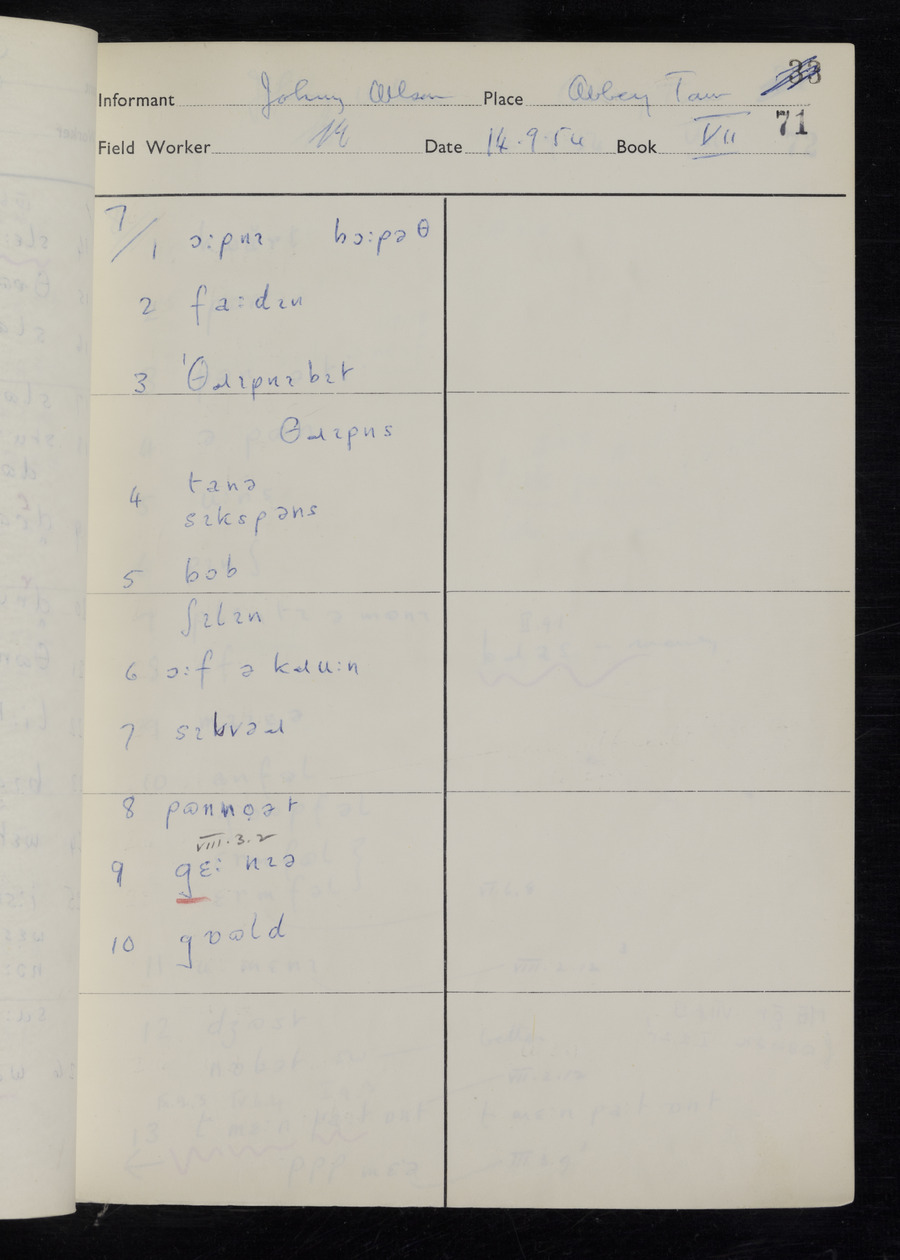 33
Informant Johnny Wilson Place Abbey Town
71
Field Worker Date 14.9.54 Book VII
7/1 ɔ:pnɪ bɔ:pəθ
2 fa:dɪn
3 'θɹɪpnɪbɪt
θɹɪpns
4 tanə
sɪkspəns
5 bɔb
ʃɪlɪn
6 ɔ:f ə kɹuu:n
7 sɪkvəɹ
8 pɷnnọət
VIII.3.2
9 gɛ:nɪə
10 gɒɷld